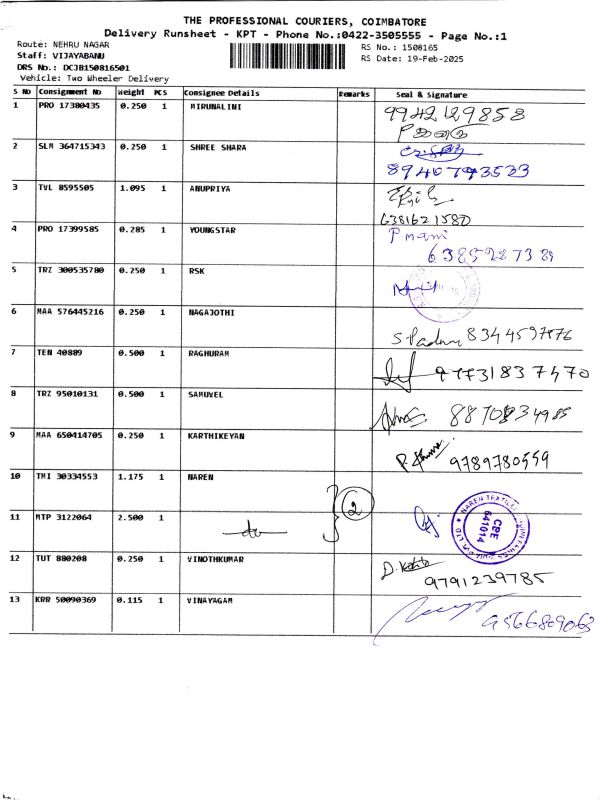 THE PROFESSIONAL COURIERS, COIMBATORE
Delivery Runsheet - KPT - Phone No.:0422-3505555 - Page No.:1
Route: NEHRU NAGAR
RS No.: 1508165
Staff: VIJAYABANU
RS Date: 19-Feb-2025
DRS No.: DCJB150816501
Vehicle: Two Wheeler Delivery
S NO Consignment No Weight PCS Consignee Details Remarks Seal & Signature
1 PRO 17380435 0.250 1 MIRUNALINI 9942129858
2 SLM 364715343 0.250 1 SHREE SHARA
8940793523
3 TVL 8595505 1.095 1 ANUPRIYA
6381621580
4 PRO 17399585 0.285 1 YOUNGSTAR P mani
6385287389
5 TRZ 300535780 0.250 1 RSK
6 MAA 576445216 0.250 1 NAGAJOTHI
S. Padma 8344597876
7 TEN 40889 0.500 1 RAGHURAM
8 TRZ 95010131 0.500 1 SAMUVEL
9 MAA 650414705 0.250 1 KARTHIKEYAN
9789780559
10 TMI 30334553 1.175 1 NAREN
2
NAREN TEXTILE
CBE
641014
11 MTP 3122064 2.500 1 do
12 TUT 880208 0.250 1 VINOTHKUMAR
9791239785
13 KRR 50090369 0.115 1 VINAYAGAM
9566809063